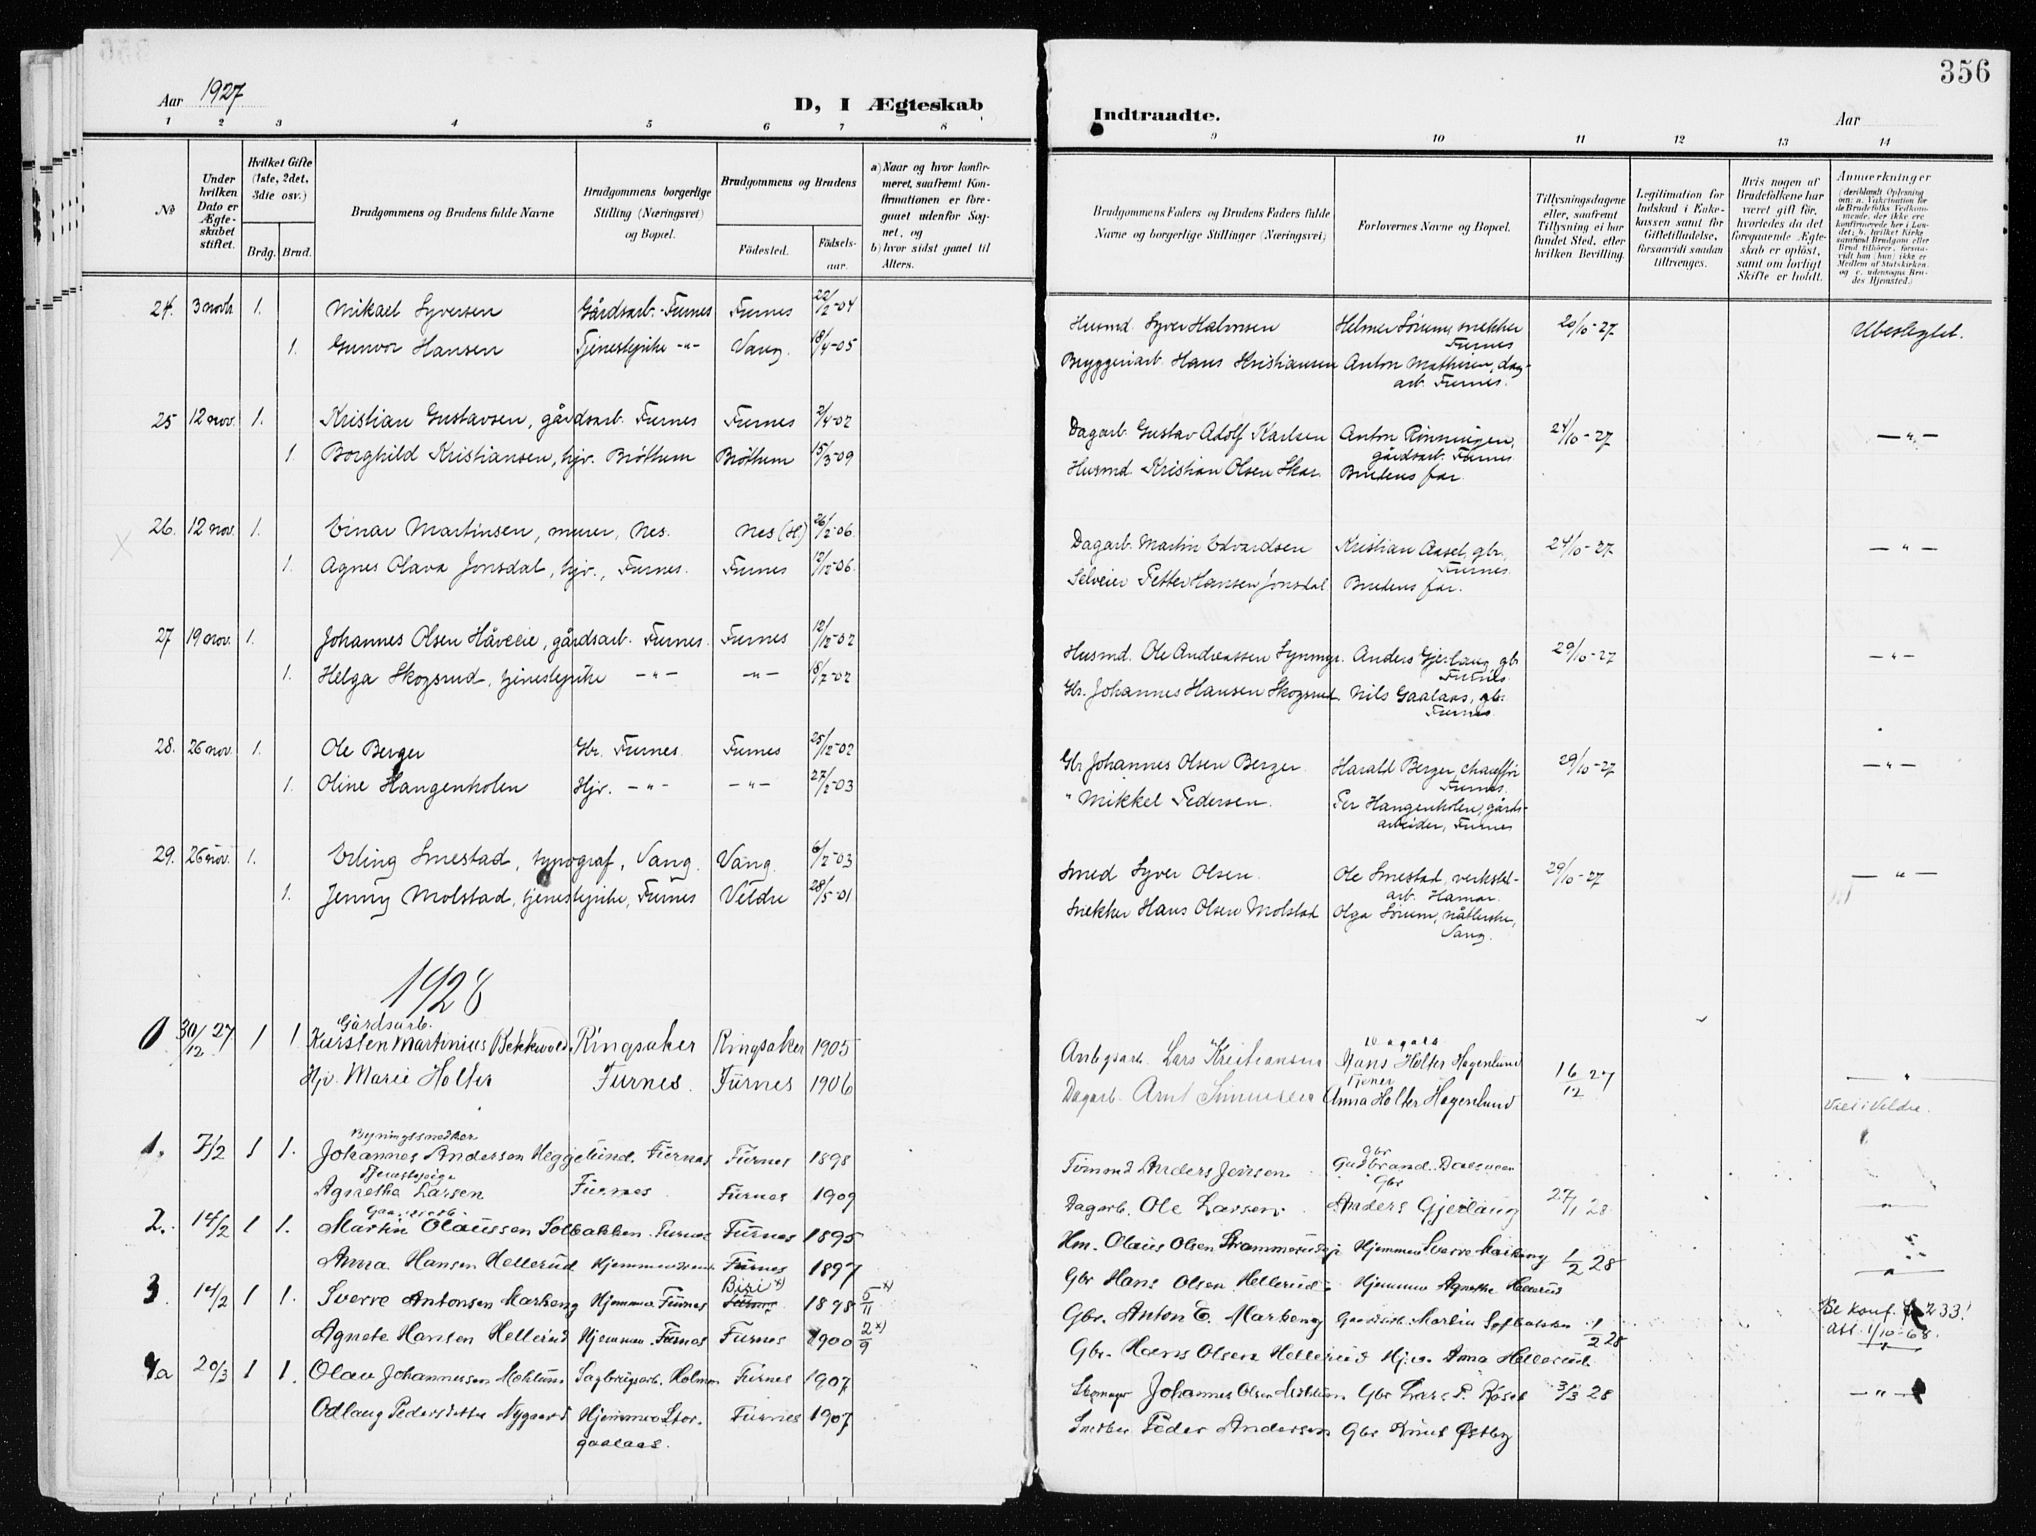 356
Aar 1927
D, I Ægteskab
Indtraadte.
Aar
1 2 3 4 5 6 7 8
9 10 11 12 13 14
No
Under hvilken Dato er Ægteskabet stiftet.
Hvilket Gifte (1ste, 2det, 3die osv.)
Brdg. Brud.
Brudgommens og Brudens fulde Navne
Brudgommens borgerlige Stilling (Næringsvei) og Bopæl.
Brudgommens og Brudens
Fødested. Fødselsaar.
a) Naar og hvor konfirmeret, saafremt Konfirmationen er foregaaet udenfor Sognet, og
b) hvor sidst gaaet til Alters.
Brudgommens Faders og Brudens Faders fulde Navne og borgerlige Stillinger (Næringsvei)
Forlovernes Navne og Bopæl.
Tillysningsdagene eller, saafremt Tillysning ei har fundet Sted, efter hvilken Bevilling.
Legitimation for Indskud i Enkekassen samt for Giftetilladelse, forsaavidt saadan tiltrænges.
Hvis nogen af Brudefolkene har været gift før, hvorledes da det foregaaende Ægteskab er opløst, samt om lovligt Skifte er holdt.
Anmærkninger (deriblandt Oplysning om: a. Vakcination for de Brudefolks Vedkommende, der ikke ere konfirmerede her i Landet; b. hvilket Kirkesamfund Brudgom eller Brud tilhører, forsaavidt han (hun) ikke er Medlem af Statskirken, og c. udensogns Brudes Hjemsted.)
24. 3 novb 1. Mikael Syversen Gårdsarb. Furnes Furnes 22/2-04 Husmd. Syver Halvorsen Helmer Sørum, snekker Furnes 20/10-27 Ubeslegtet.
1. Gunvor Hansen Tjenestepike -"- Vang. 18/4-05 Bryggeriarb. Hans Kristiansen Anton Mathisen, dagarb. Furnes.
25 12 nov. 1. Kristian Gustavsen, gårdsarb. Furnes Furnes 2/4-02 Dagarb. Gustav Adolf Karlsen Anton Rønningen, gårdsarb. Furnes 24/10-27 -"-
1. Borghild Kristiansen, hjv. Brøttum Brøttum 15/3-09 Husmd. Kristian Olsen Skar. Brudens far.
26. 12 nov. 1. Einar Martinsen, murer, Nes. Nes (H.) 26/2-06. Dagarb. Martin Edvardsen Kristian Aasel, gbr., Furnes. 24/10-27 -"-
1. Agnes Olava Jonsdal, hjv., Furnes. Furnes 12/12-06. Selveier Petter Hansen Jonsdal Brudens far.
27 19 nov. 1. Johannes Olsen Håveeie, gårdsarb. Furnes. Furnes 12/12-02 Husmd. Ole Andreassen Anders Gjerlaug, gb. Furnes. 29/10-27 -"-
1. Helga Skogsrud, tjenestepike -"- -"- 18/7-02 Gbr. Johannes Hansen Skogsrud. Nils Gaalaas, gb. Furnes.
28. 26 nov. 1. Ole Berger Gbr. Furnes. Furnes 25/12-02 Gbr Johannes Olsen Berger. Harald Berger, chauffør Furnes. 29/10-27 -"-
1. Oline Hangenholen Hjv. -"- -"- 27/2-03 " Mikkel Pedersen. Per Hangenholen, gårdsarbeider, Furnes
29. 26 nov. 1. Erling Smestad, typograf, Vang. Vang. 6/2-03 Smed Syver Olsen. Ole Smestad, verkstedarb. Hamar. 29/10-27 -"-
1. Jenny Molstad, tjenestepike, Furnes Veldre 28/5-01 Snekker Hans Olsen Molstad Olga Sørum, Vang.
1928
0 30/12 27 1 1. Gårdsarb. Karsten Martinius Bekkevold. Ringsaker Ringsaker 1905 Anlegsarb. Lars Kristiansen Hans Holter Hagenlund 16/12 27 -"-
Hjv. Marie Holter Furnes. Furnes 1906 Dagarb. Arnt Simensen Anna Holter Hagenlund Viet i Veldre.
1. 7/2 1 1. Bygningssnedker Johannes Andersen Heggelund. Furnes Furnes 1898 Anders Jensen Gbr Gudbrand
Tjenestepige Agnethe Larsen Furnes Furnes 1909 Dagarb. Ole Larsen. Gbr Anders Gjerlaug 27/1 28 -"-
2. 14/2 1 1. Martin Olaussen Solbakken. Furnes Furnes 1895 Hm. Olaus Olsen Hjemmev Sverre Markeng 1/2 28
Anna Hansen Hellerud Hjemmeværende Furnes 1897 Gbr Hans Olsen Hellerud. Hjemmev Agnethe Hellerud -"-
3. 14/2 1 1. Sverre Antonsen Markeng Hjemmev. Furnes Biri x) Furnes 1898 5/11 x) Gbr. Anton E. Markeng Gaardsarb. Martin Solbakken 1/2 28 Se konf. 233! att. 1/10-68.
Agnete Hansen Hellerud Hjemmev. Furnes Furnes 1900 2/9 x) Gbr. Hans Olsen Hellerud Hjv. Anna Hellerud. -"-
4a 20/3 1 1. Olav Johannessen Mehlum Sagbrugsarb. Holmen Furnes 1907 Johannes Olsen Mehlum Gbr Lars P. Koset 3/3 28 -"-
Odlaug Pedersdatter Nygaard Hjemmev Storgaalaas. Furnes 1907 Snedker Peder Andersen Gbr Knut Østby